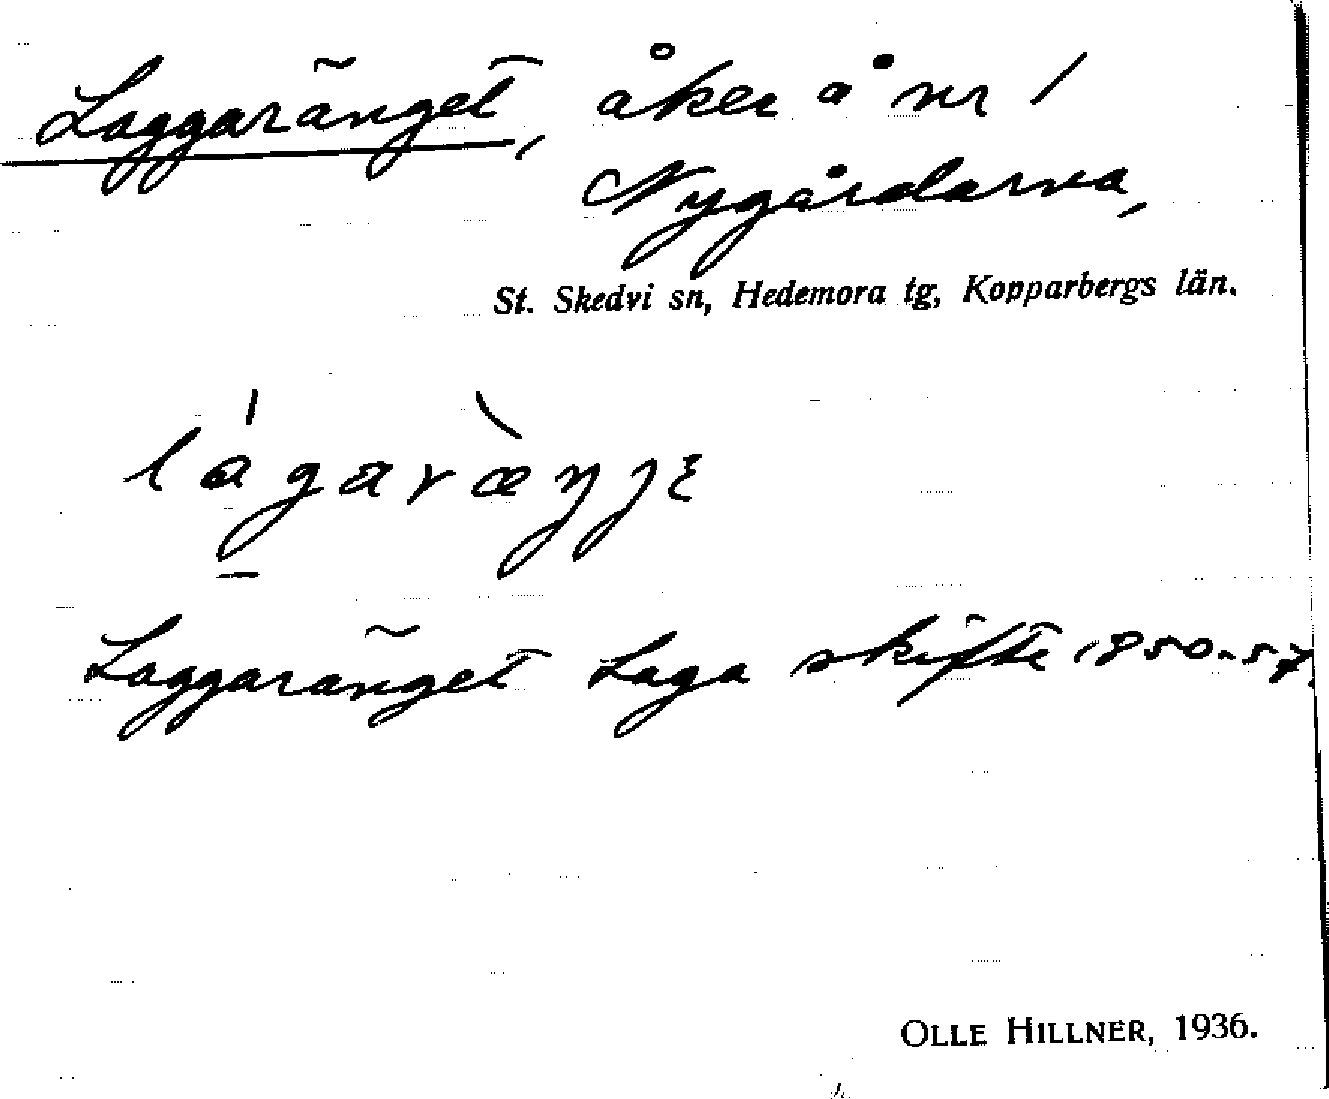 Laggaränget, åker å nr 1
Nygårdarna,
St. Skedvi sn, Hedemora tg, Kopparbergs län.
Laggaränget Laga skifte 1850-57.
OLLE HILLNER, 1936.